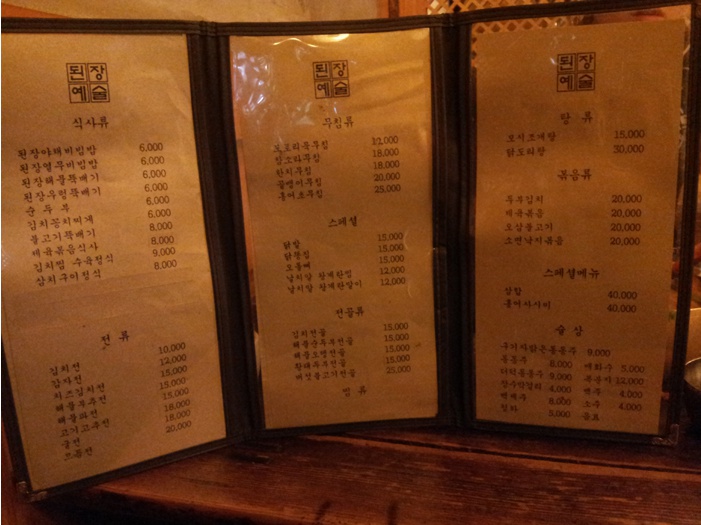 된장
예술
식사류
된장야채비빔밥 6,000
된장열무비빔밥 6,000
된장해물뚝배기 6,000
된장우렁뚝배기 6,000
순두부 6,000
김치꽁치찌개 6,000
불고기뚝배기 8,000
제육볶음식사 8,000
김치찜 수육정식 9,000
삼치구이정식 8,000
전류
김치전 10,000
감자전 12,000
치즈김치전 15,000
해물부추전 15,000
해물파전 18,000
고기고추전 18,000
굴전 20,000
모듬전
된장
예술
무침류
도토리묵무침 12,000
참소라무침 18,000
한치무침 18,000
골뱅이무침 20,000
홍어초무침 25,000
스페셜
닭발 15,000
닭똥집 15,000
오돌뼈 15,000
날치알 왕계란찜 12,000
날치알 왕계란말이 12,000
전골류
김치전골 15,000
해물순두부전골 15,000
해물오뎅전골 15,000
황태두부전골 15,000
버섯불고기전골 25,000
밥류
된장
예술
탕류
모시조개탕 15,000
닭도리탕 30,000
볶음류
두부김치 20,000
제육볶음 20,000
오삼불고기 20,000
소면낙지볶음 20,000
스페셜메뉴
삼합 40,000
홍어사시미 40,000
술상
구기자맑은동동주 9,000
동동주 8,000 매화수 5,000
더덕동동주 9,000 복분자 12,000
장수막걸리 4,000 맥주 4,000
백세주 8,000 소주 4,000
청하 5,000 음료